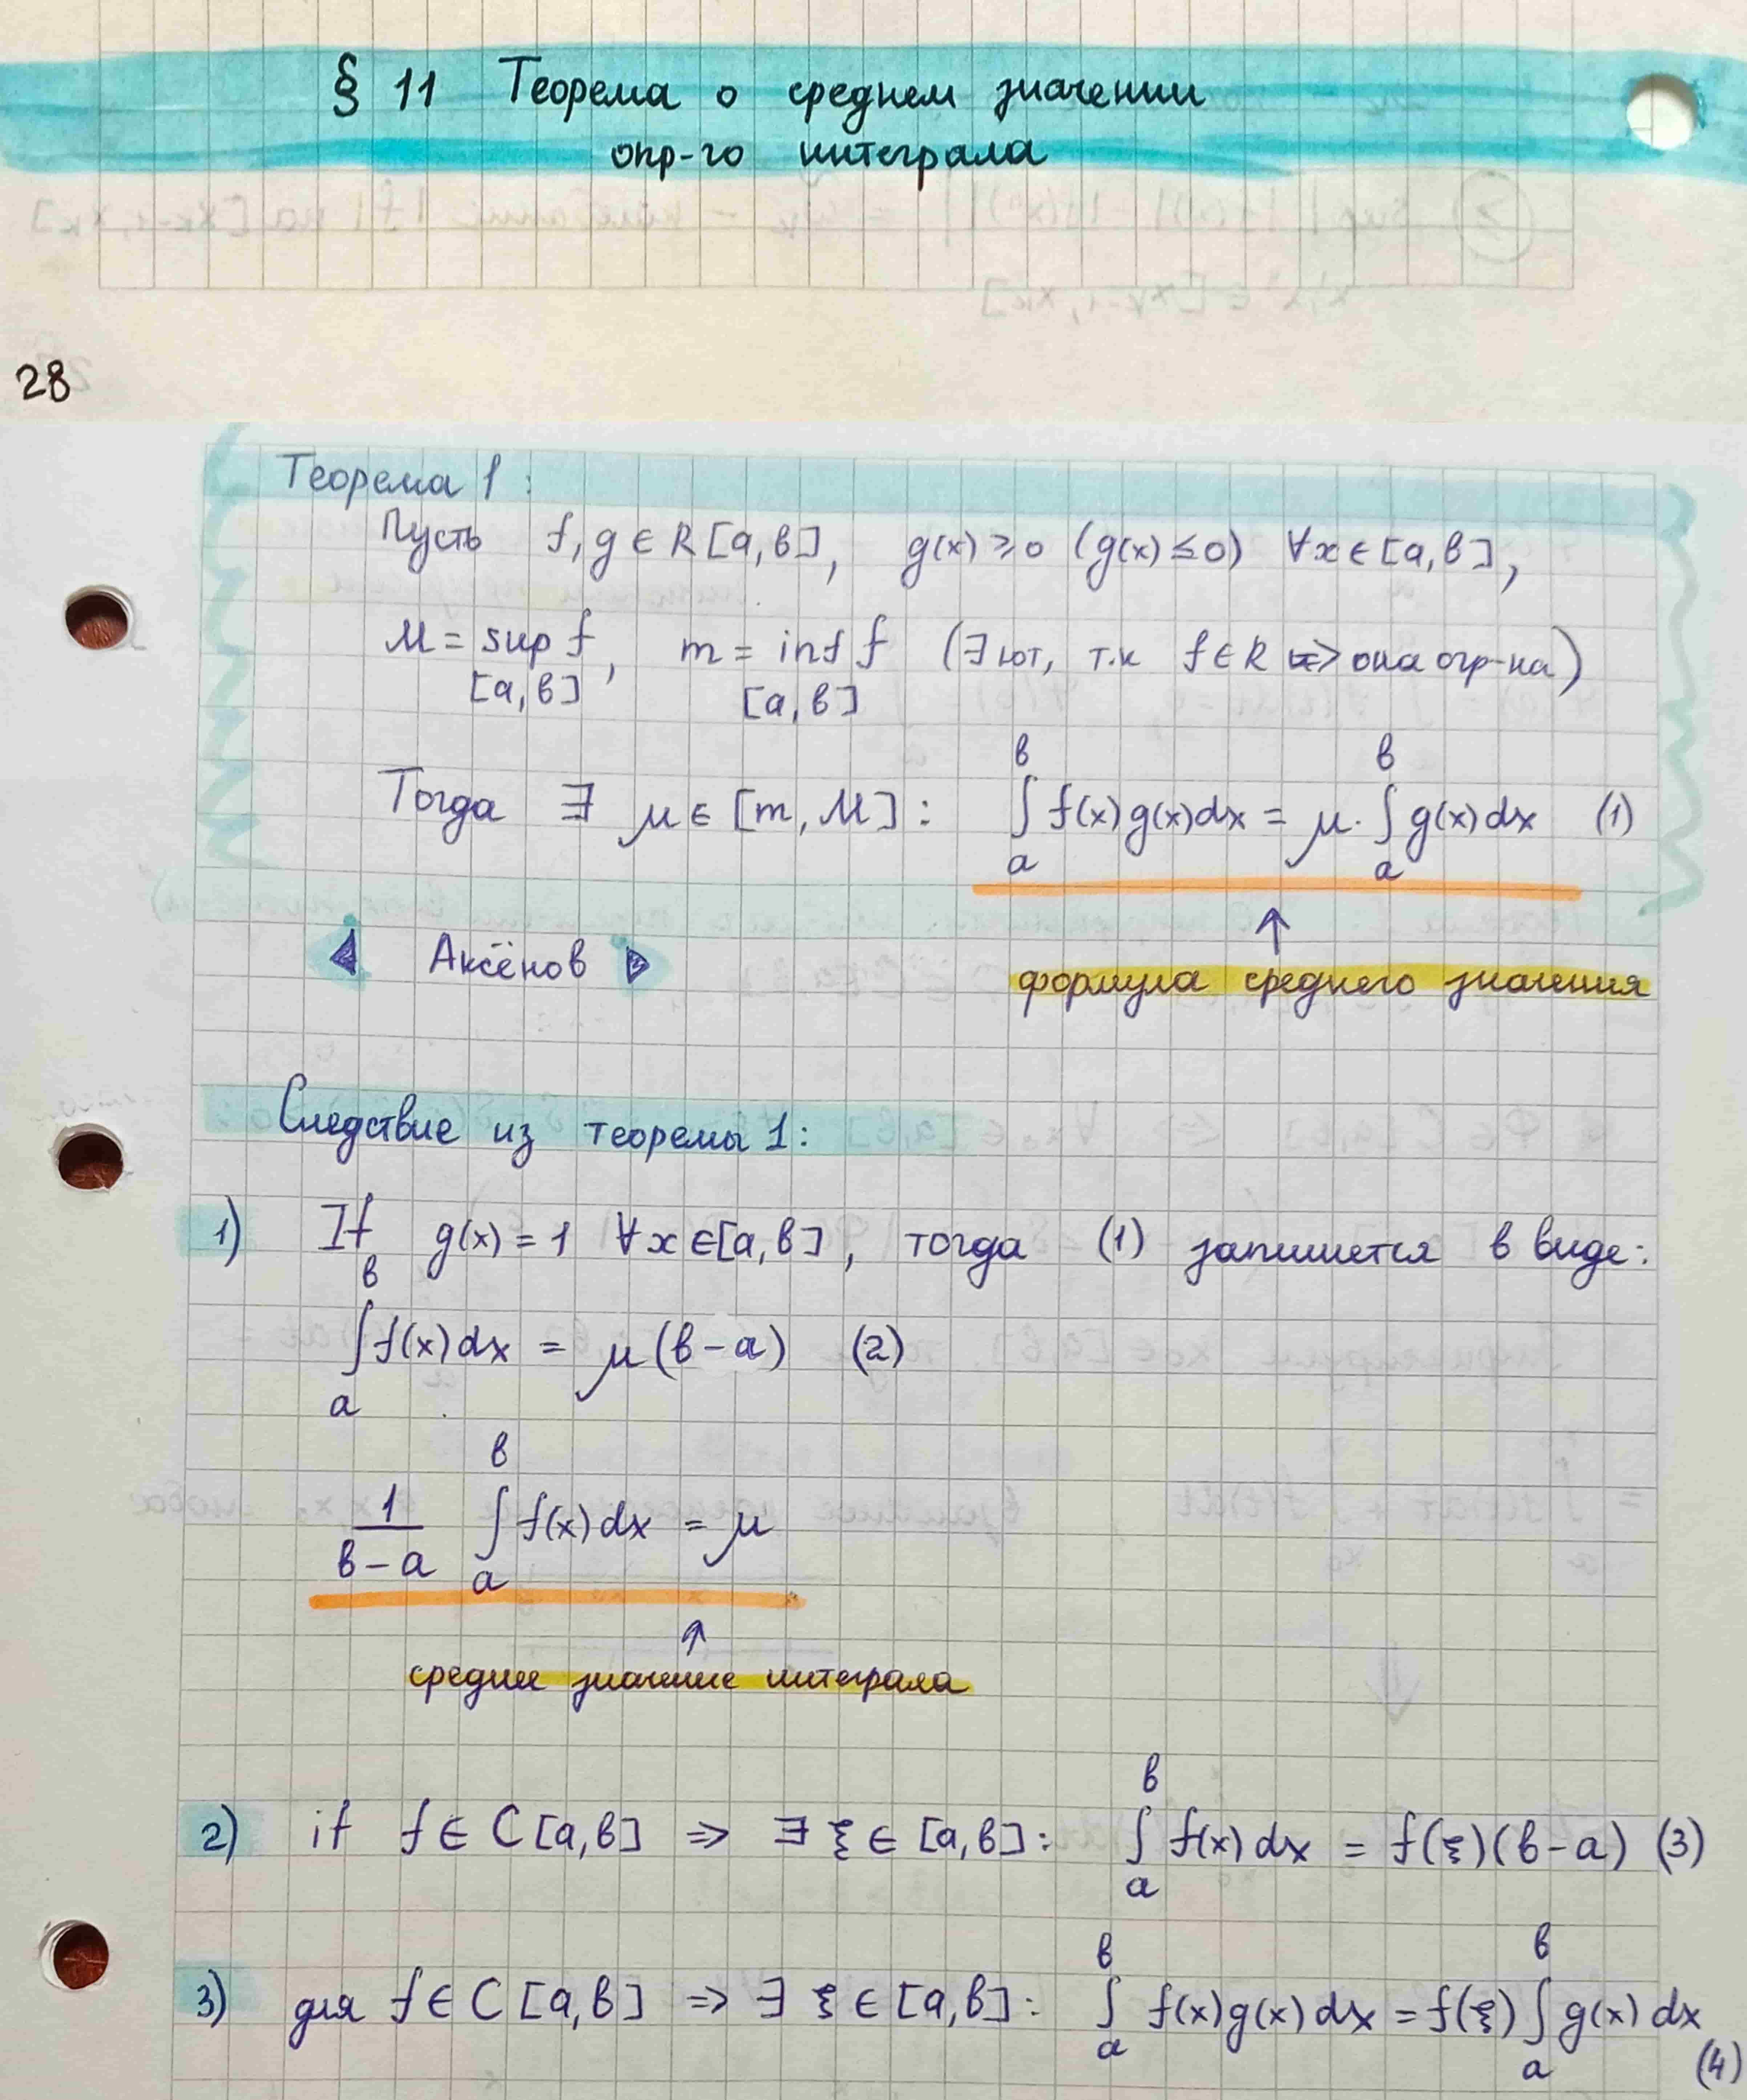 § 11 Теорема о среднем значении
опр-го интеграла
28
Теорема 1:
Пусть f, g ∈ R [a, b], g(x) ⩾ 0 (g(x) ≤ 0) ∀x ∈ [a, b],
M = sup f, m = inf f (∃ют, т.к f ∈ R => она огр-на)
[a, b] [a, b]
Тогда ∃ μ ∈ [m, M]: ∫_a^b f(x)g(x)dx = μ · ∫_a^b g(x)dx (1)
↑
◀ Аксёнов ▶
формула среднего значения
Следствие из теоремы 1:
1) If g(x) = 1 ∀x ∈ [a, b], тогда (1) запишется в виде:
∫_a^b f(x)dx = μ(b-a) (2)
1/(b-a) ∫_a^b f(x)dx = μ
↑
среднее значение интеграла
2) if f ∈ C [a, b] => ∃ ξ ∈ [a, b]: ∫_a^b f(x)dx = f(ξ)(b-a) (3)
3) для f ∈ C [a, b] => ∃ ξ ∈ [a, b]: ∫_a^b f(x)g(x)dx = f(ξ) ∫_a^b g(x)dx
(4)